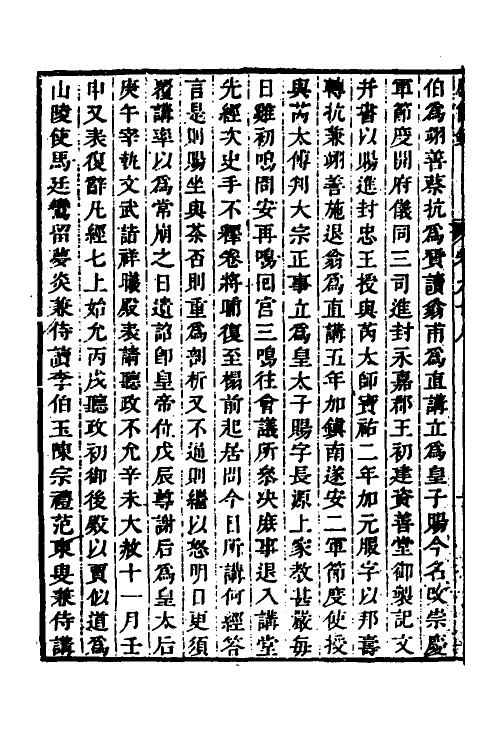 伯為翊善蔡抗為贊讀翁甫為直講立為皇子賜今名改崇慶
軍節度開府儀同三司進封永嘉郡王初建資善堂御製記文
并書以賜進封忠王授與芮太師寶祐二年加元服字以邦壽
轉抗兼翊善施退翁為直講五年加鎮南遂安二軍節度使授
與芮太傅判大宗正事立為皇太子賜字長源上家教甚嚴每
日雞初鳴問安再鳴囘宮三鳴往會議所參决庶事退入講堂
先經次史手不釋卷將晡復至榻前起居問今日所講何經答
言是則賜坐與茶否則重為剖析又不通則繼以怒明日更須
覆講率以為常崩之日遺詔卽皇帝位戊辰尊謝后為皇太后
庚午宰執文武詣祥曦殿表請聽政不允辛未大赦十一月壬
申又表復辭凡經七上始允丙戌聽政初御後殿以賈似道為
山陵使馬廷鸞留夢炎兼侍讀李伯玉陳宗禮范東叟兼侍講